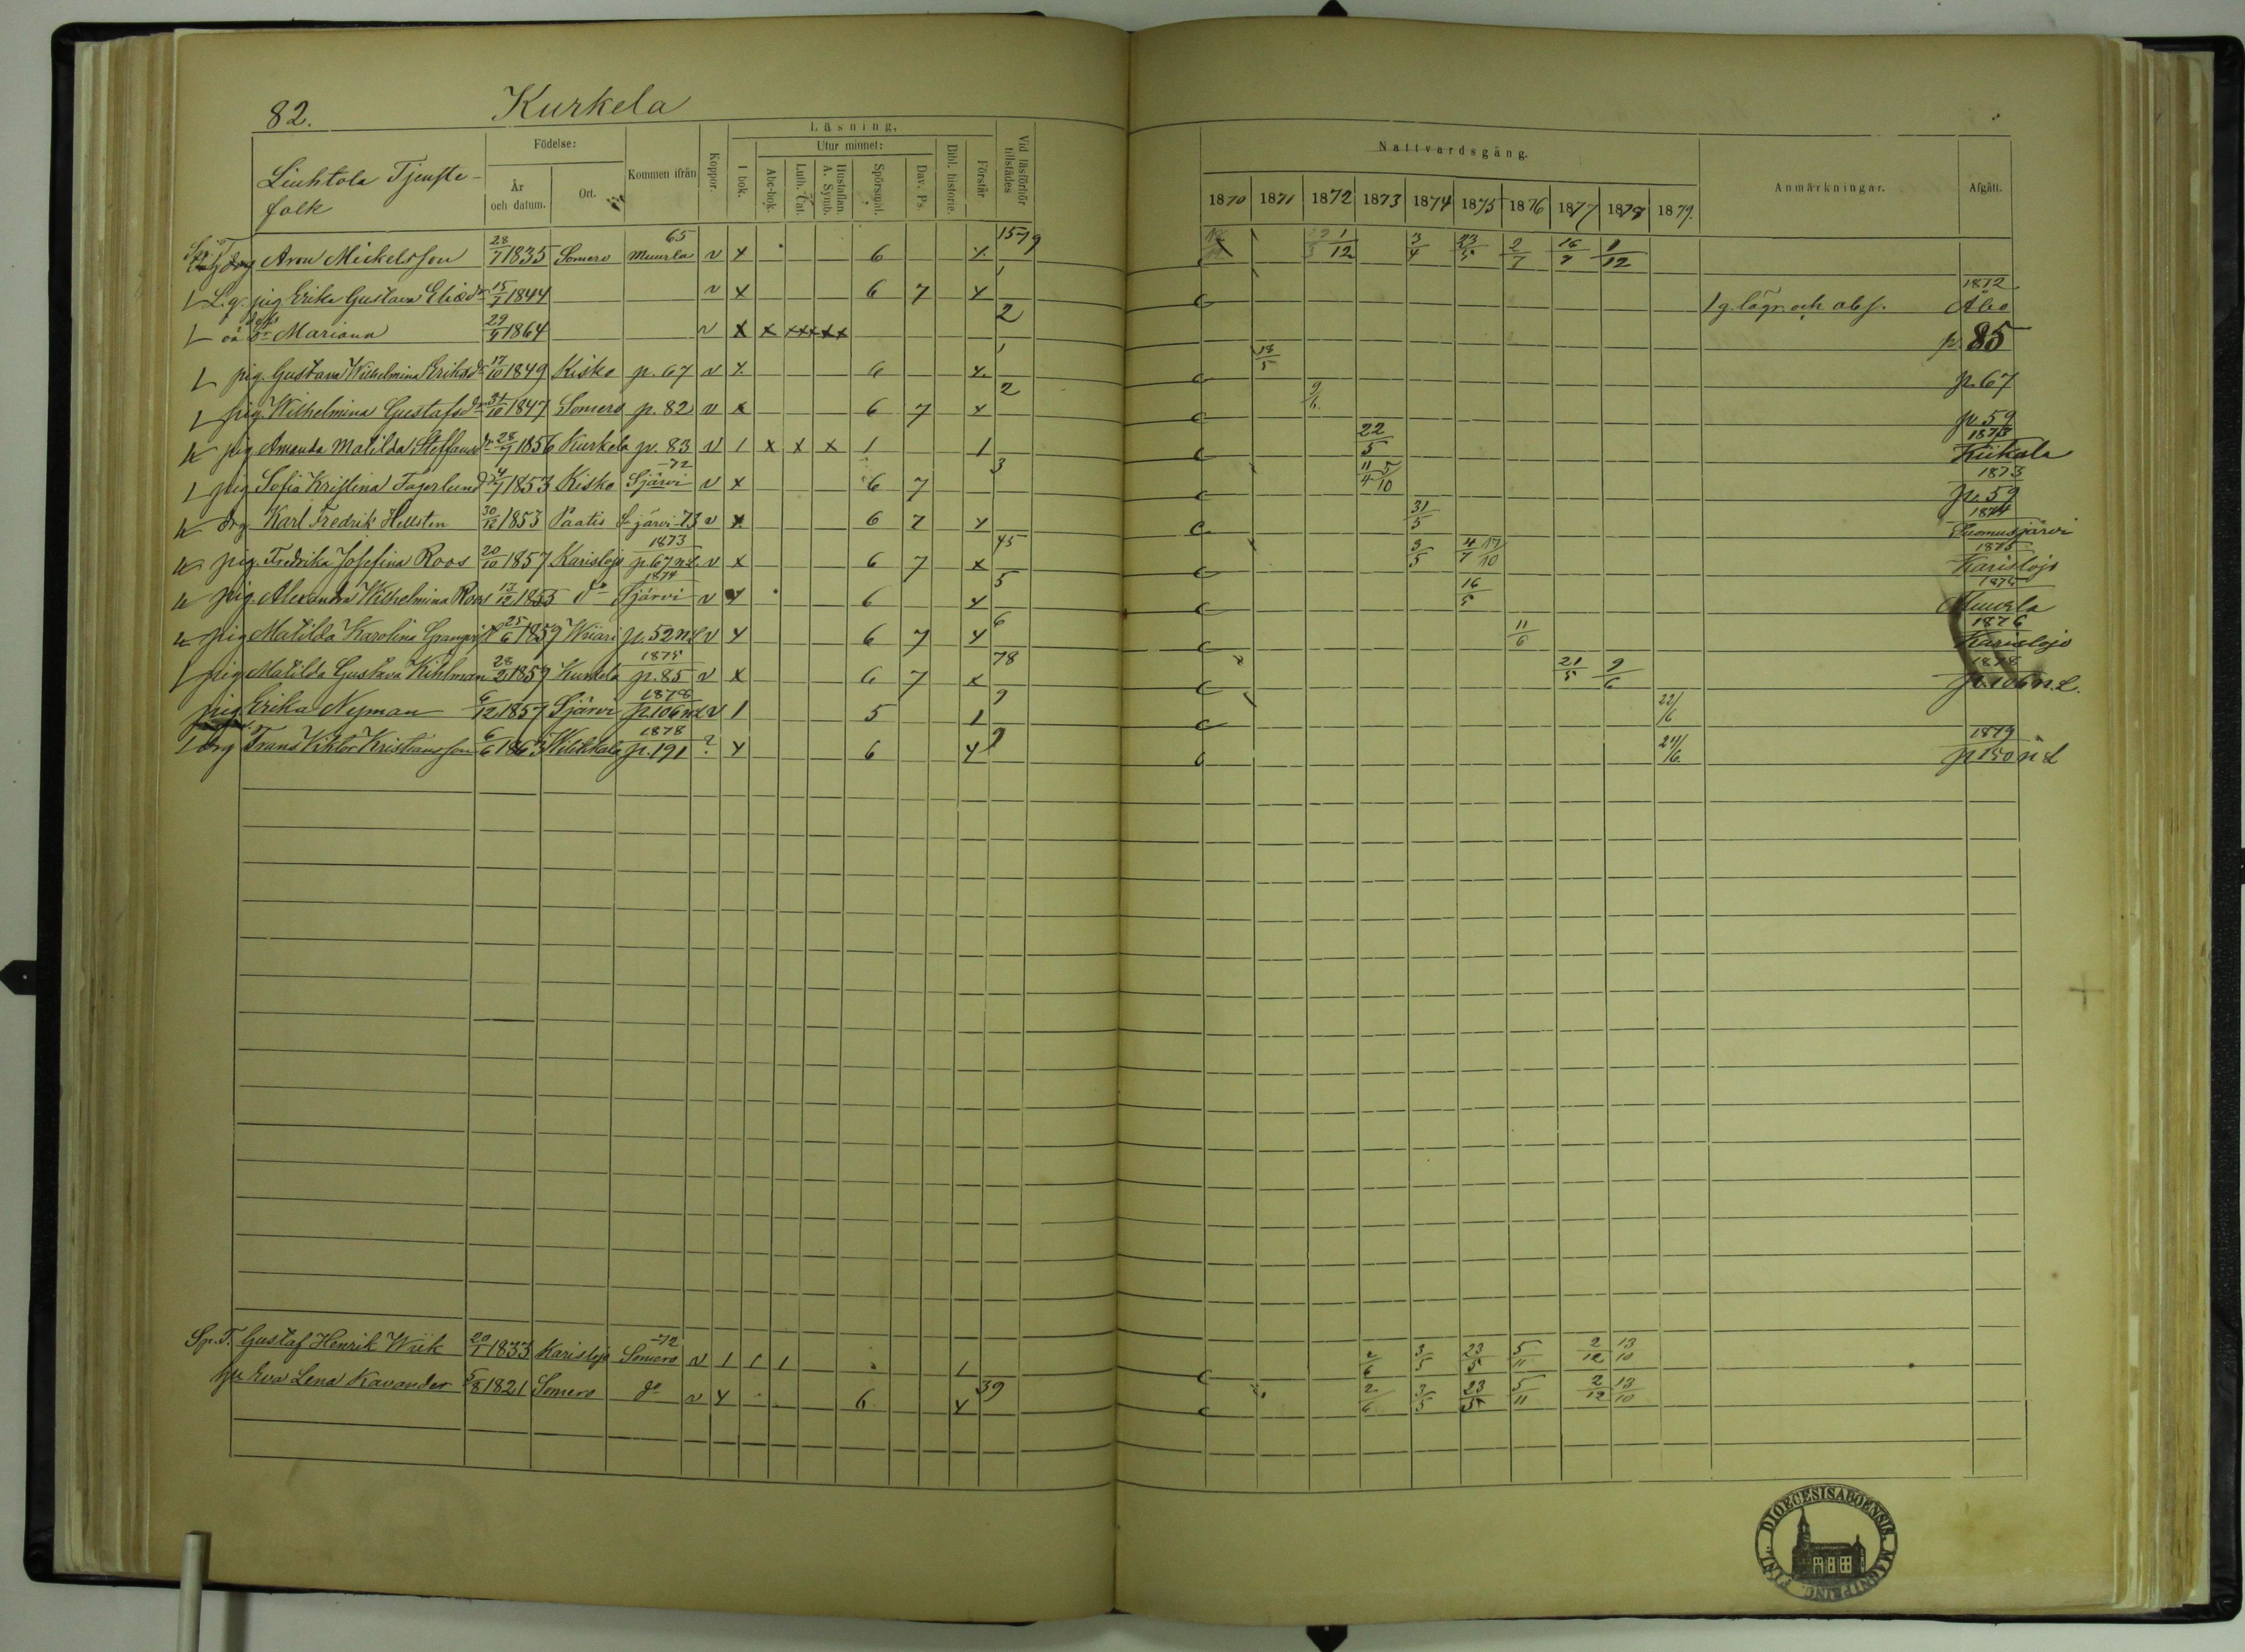 82. Kurkela
Liuhtola Tjenste-
folk
Födelse:
År
och datum.
Ort.
Kommen ifrån
Koppor.
Läsning.
I bok.
Utur minnet:
Abc-bok.
Luth. Cat.
Hustaflan
A. Symb.
Spörsmal.
Dav. Ps.
Bibl. historie.
Förstår
Vid läsförhör
tillstädes
Nattvardsgång.
1870 1871 1872 1873 1874 1875 1876 1877 1878 1879.
Anmärkningar.
Afgått.
Aron Mickelsson 28/7 1835 Somero 65 Muurla v x 6 x 15-79 1/12 3/4 23/5 2/7 16/7 1/12
L.g. pig Erika Gustava Eliædr 15/7 1844 v x 6 7 x 1 c lg. lägr. och abs. 1872 Åbo
oä dr Mariana 29/9 1864 v x x x x x x x 2 p. 85
pig. Gustava Wilhelmina Eriksdr 17/10 1849 Kisko p. 67 v x 6 x 1 c 18/5 p. 67
pig Wilhelmina Gustafsdr 31/10 1847 Somero p. 82 v x 6 7 x 2 c 9/6 p. 59
pig Amanda Matilda Steffansdr 28/7 1856 Kurkela p. 83 v 1 x x x 1 1 c 22/5 1873 Kiikala
pig Sofia Kristina Fagerlund 4/7 1853 Kisko -72 Sjärvi v x 6 7 3 c 11/4 5/10 1873 p. 59
drg Karl Fredrik Hellsten 30/12 1853 Paatis Sjärvi -73 v x 6 7 x c 31/5 1874 Suomusjärvi
pig. Fredrika Josefina Roos 20/10 1857 Karislojo 1873 p. 67 n.L. v x 6 7 x 45 c 3/5 4/7 17/10 1875 Karislojo
pig. Alexandra Wilhelmina Roos 13/12 1855 do 1874 Sjärvi v x 6 x 5 c 16/5 1875 Muurla
pig Matilda Karolina 25/6 1859 Wiiari p. 52 n.L v x 6 7 x 6 c 11/6 1876 Karislojo
pig Matilda Gustava Kihlman 28/2 1859 Kurkela 1875 p. 85 v x 6 7 x 78 c 21/5 9/6 1878 p. 106 n.L.
pig Erika Nyman 6/12 1857 Sjärvi 1878 p. 106 n.L v 1 5 1 9 c 22/6
drg Frans Viktor Kristiansson 6/6 1863 1878 p. 191 ? x 6 x 9 c 24/6 1879 p. 150 n L
Sp. T. Gustaf Henrik Wiik 20/1 1833 Karislojo -72 Somero v 1 1 1 1 c 2/6 3/5 23/5 5/11 2/12 13/10
hu Eva Lena Kavander 5/8 1821 Somero do v x 6 x 39 c 2/6 3/5 23/5 5/11 2/12 13/10
DIOECESIS ABOENSIS. MAGNI PRINC. FINL.